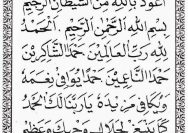 أَعُوذُ بِاللهِ مِنَ الشَّيْطَانِ الرَّجِيْمِ
بِسْمِ اللهِ الرَّحْمٰنِ الرَّحِيْمِ. اَلْحَمْدُ
لِلّٰهِ رَبِّ الْعَالَمِيْنَ حَمْدَ الشَّاكِرِيْنَ
حَمْدَ النَّاعِمِيْنَ حَمْدًا يُوَافِيْ نِعَمَهُ
وَيُكَافِئُ مَزِيْدَهُ يَارَبَّنَا لَكَ الْحَمْدُ
كَمَا يَنْبَغِيْ لِجَلَالِ وَجْهِكَ وَعَظِيْمِ